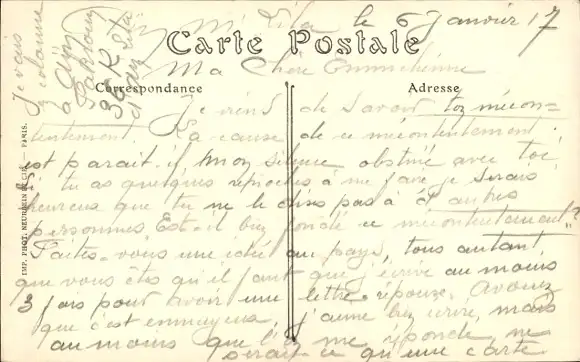 le 6 Janvier 17
Carte Postale
Ma Chère
Correspondance
Adresse
Je viens de savoir ton mécon-
tentement. La cause de ce mécontentement
est parait-il mon silence obstiné avec toi,
si tu as quelques reproches à me faire je serais
heureux que tu ne le dises pas à d'autres
personnes. Est-il bien fondé ce mécontentement?
Faites-vous une idée au pays, tous autant
que vous êtes qu'il faut que j'écrive au moins
3 fois pour avoir une lettre-réponse. Avouez
que c'est ennuyeux, j'aime bien écrire, mais
au moins que l'on me réponde, ne
serait-ce qu'une carte
Je vais
à
36 K
IMP. PHOT. NEURDEIN ET CIE. — PARIS.